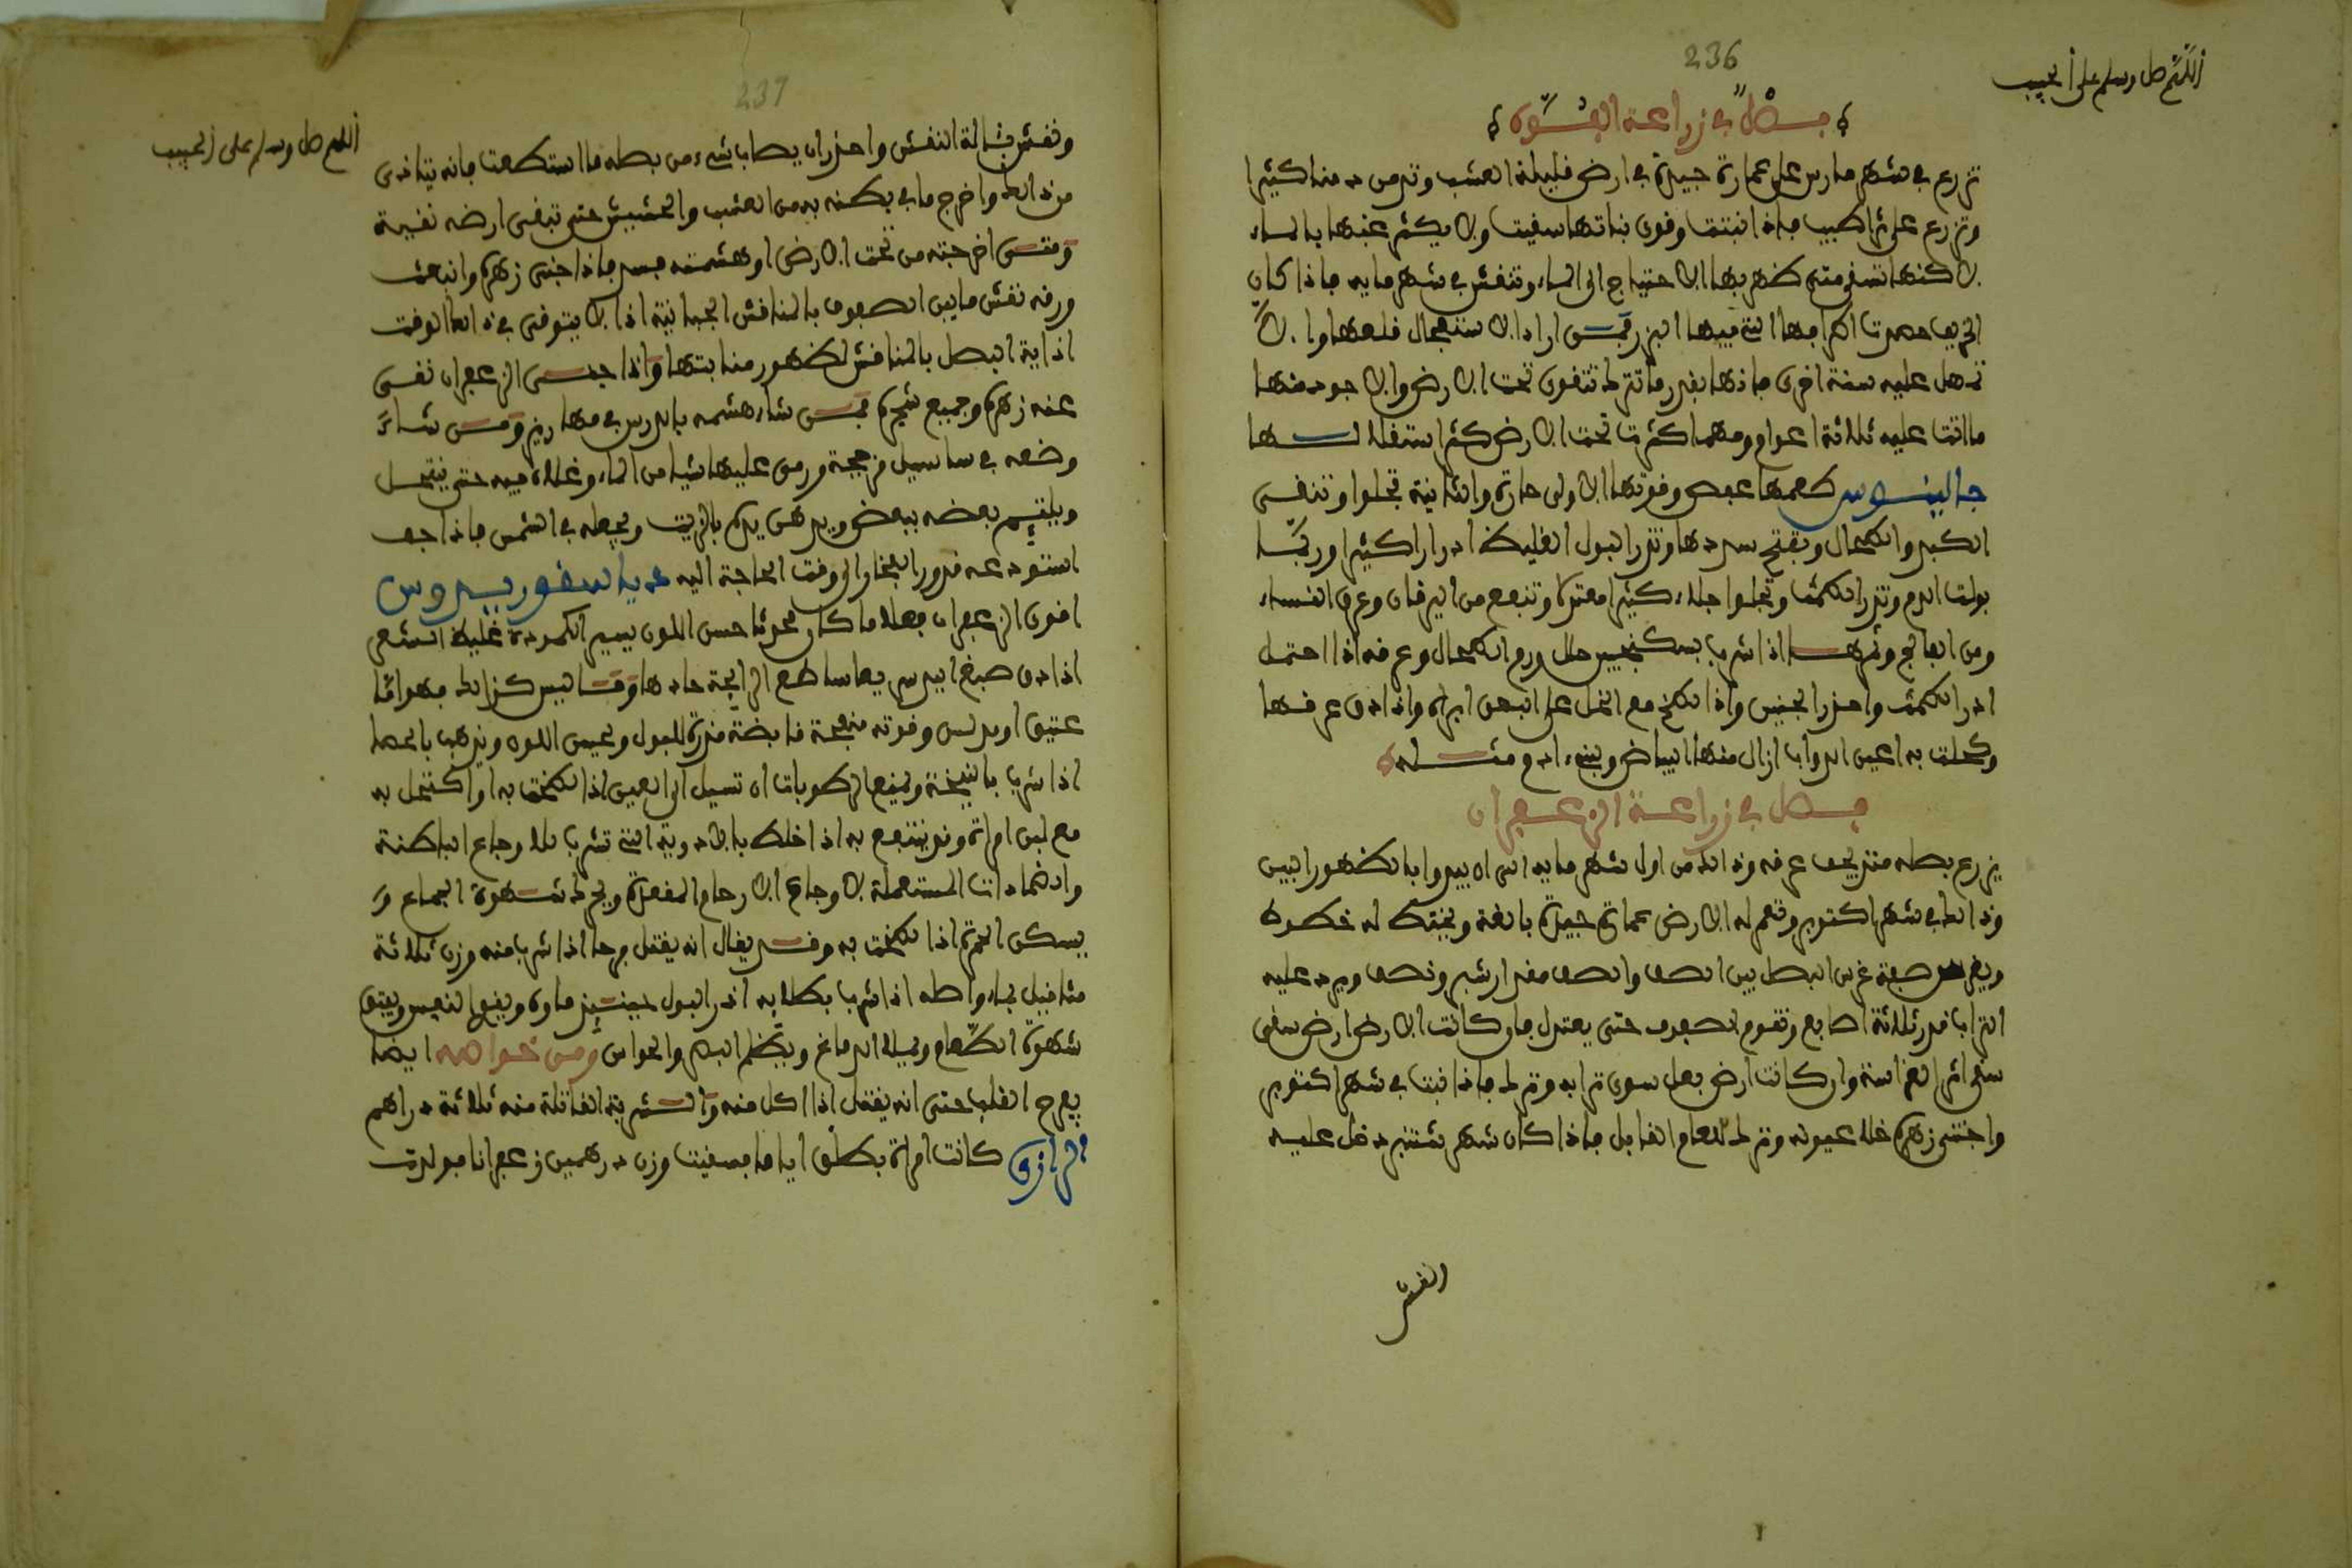 236
اللهم صل وسلم على الحبيب
فصل في زراعة الفوة
تزرع في شهر مارس على عمارة جيدة في ارض قليلة العشب وتدمن دمنا كثيرا
وتزرع على ثرا طيب فاذا انبتت وقوى نباتها سقيت ولا يكثر عنها بالماء
لاكنها تسقى متى ظهر بها الاحتياج الى الماء وتنقش في شهر مايه فاذا كان
الخريف حصدت اطرافها التي فيها البزر فمن اراد الاستعجال قلعها والا
تمهل عليه سنة اخرى فانها بقدر ما تترك تتقوى تحت الارض والاجود منها
ما اتت عليه ثلاثة اعوام ومهما كثرت تحت الارض كثر استغلالها
جالينوس طعمها عفص وقوتها الاولى حارة والثانية تجلوا وتنقى
الكبد والطحال وتفتح سددها وتدر البول الغليظ ادرارا كثيرا وربما
بولت الدم وتدر الطمث وتجلوا جلاء كثيرا معتدلا وتنفع من اليرقان وعرق النساء
ومن الفالج وثمرها اذا شرب بسكنجبين حلل ورم الطحال وعرقه اذا احتمل
ادر الطمث واحدر الجنين واذا لطخ مع الخل على البهق ابراه واذا دق عرقها
وكحلت به اعين الدواب ازال منها البياض وبنيء ادم مثله
فصل في زراعة الزعفران
يزرع بصله منتزيحف عرقه وذالك من اول شهر مايه الى ان يبدوا بالظهور ابين
وذالك في شهر اكتوبر وتعمر له الارض عمارة جيدة بالغة ويختط له خطوط
ويغرس صفة غرس البصل بين الصف والصف مقدار شبر ونصف ويرد عليه
التراب قدر ثلاثة اصابع وتقوم الصفوف حتى يعتدل فان كانت الارض ارض سقى
سقى اثر الغراسة وان كانت ارض بعل سوى ترابه وترك فاذا نبت في شهر اكتوبر
واجتنى زهره خلا عيونه وترك للعام القابل فاذا كان شهر شتنبر دخل عليه
النقش
237
اللهم صل وسلم على الحبيب
ونقش بثالة النقش واحذر ان يصاب شيء من بصله ما استطعت فانه يتاذى
من ذالك واخرج ما في بطنه به من العشب والحشيش حتى تبقى ارضه نقية
ومتى اخرجته من تحت الارض او هشمته فسد فاذا جنى زهره وانبعث
ورقه نقش ما بين الصفوف بالمناقش الجبانية اذ لا يتوقى في ذالك الوقت
اذاية البصل بالمناقش لظهور منابتها واذا جنى الزعفران نقى
عنه زهره وجميع شجره فمن شاء هشمه باليد س في مهاريز ومن شاء
وضعه في ساسيل مزججة ورمى عليها شيا من الماء وغلاه فيه حتى ينتحل
ويلتئم بعضه ببعض ويدهن يده بالزيت ويجعله في الشمس فاذا جف
استودعه قدور الفخار الى وقت الحاجة اليه دياسقوريدوس
اقوى الزعفران فعلا ما كان محدثا حسن اللون يسير الطمودة غليظ الشعر
اذا دق صبغ اليد سريعا ساطع الرايحة حادها وما ليس كذالك فهو اما
عتيق او مدلس وقوته منضجة قابضة مدرة للبول ويحسن اللون ويذهب بالحصا
اذا شرب بالنبيخة ويمنع الرطوبات ان تسيل الى العين اذا لطخت به او اكتحل به
مع لبن امراة وقد ينتفع به اذا خلط بالادوية التي تشرب للاوجاع الباطنة
والضمادات المستعملة لاوجاع الارحام والمقعدة ويحرك شهوة الجماع و
يسكن الحمرة اذا لطخت به وقد يقال انه يقتل فرحا اذا شرب منه وزن ثلاثة
مثاقيل بماء واصله اذا شرب بطلا به ادر البول
شهوة الطعام ويملا الدماغ ويظلم البصر والحواس ومن خواصه ايضا
يفرح القلب حتى انه يقتل اذا اكل منه والشربة القاتلة منه ثلاثة دراهم
الرازي كانت امراة بطلق اياما فسقيت وزن درهمين زعفرانا فولدت